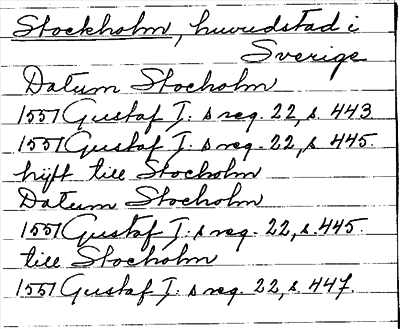 Stockholm, huvudstad i
Sverige
Datum Stocholm
1551 Gustaf I: s reg. 22, s. 443
1551 Gustaf I: s reg. 22, s. 445.
hijtt till Stocholm
Datum Stocholm
1551 Gustaf I: s reg. 22, s. 445.
till Stocholm
1551 Gustaf I: s reg. 22, s. 447.